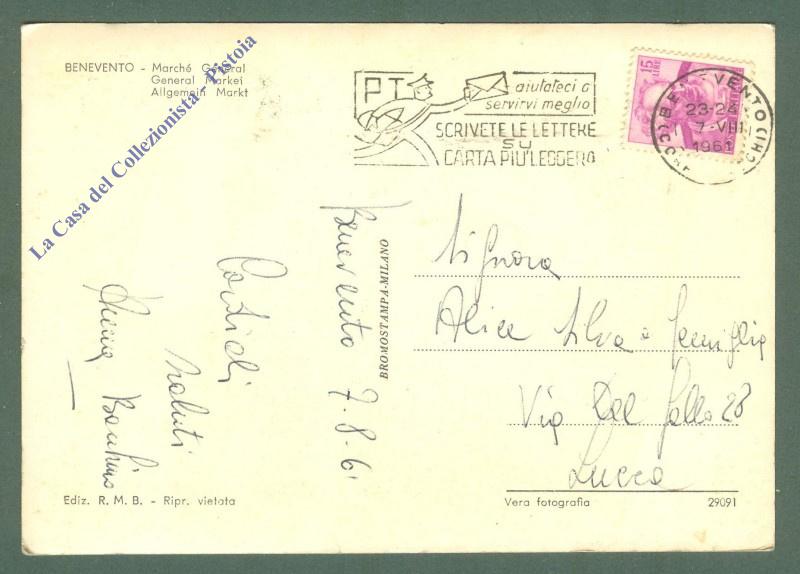 BENEVENTO - Marché General
General Markei
Allgemein Markt
La Casa del Collezionista - Pistoia
PT
aiutateci a
servirvi meglio
SCRIVETE LE LETTERE
SU
CARTA PIU' LEGGERA
15
LIRE
23-24
7-VIII
1961
Benevento 7-8-61
Cordiali
saluti
BROMOSTAMPA-MILANO
Signora
Alice Silva e famiglia
Via Del Gallo 28
Lucca
Ediz. R. M. B. - Ripr. vietata
Vera fotografia
29091